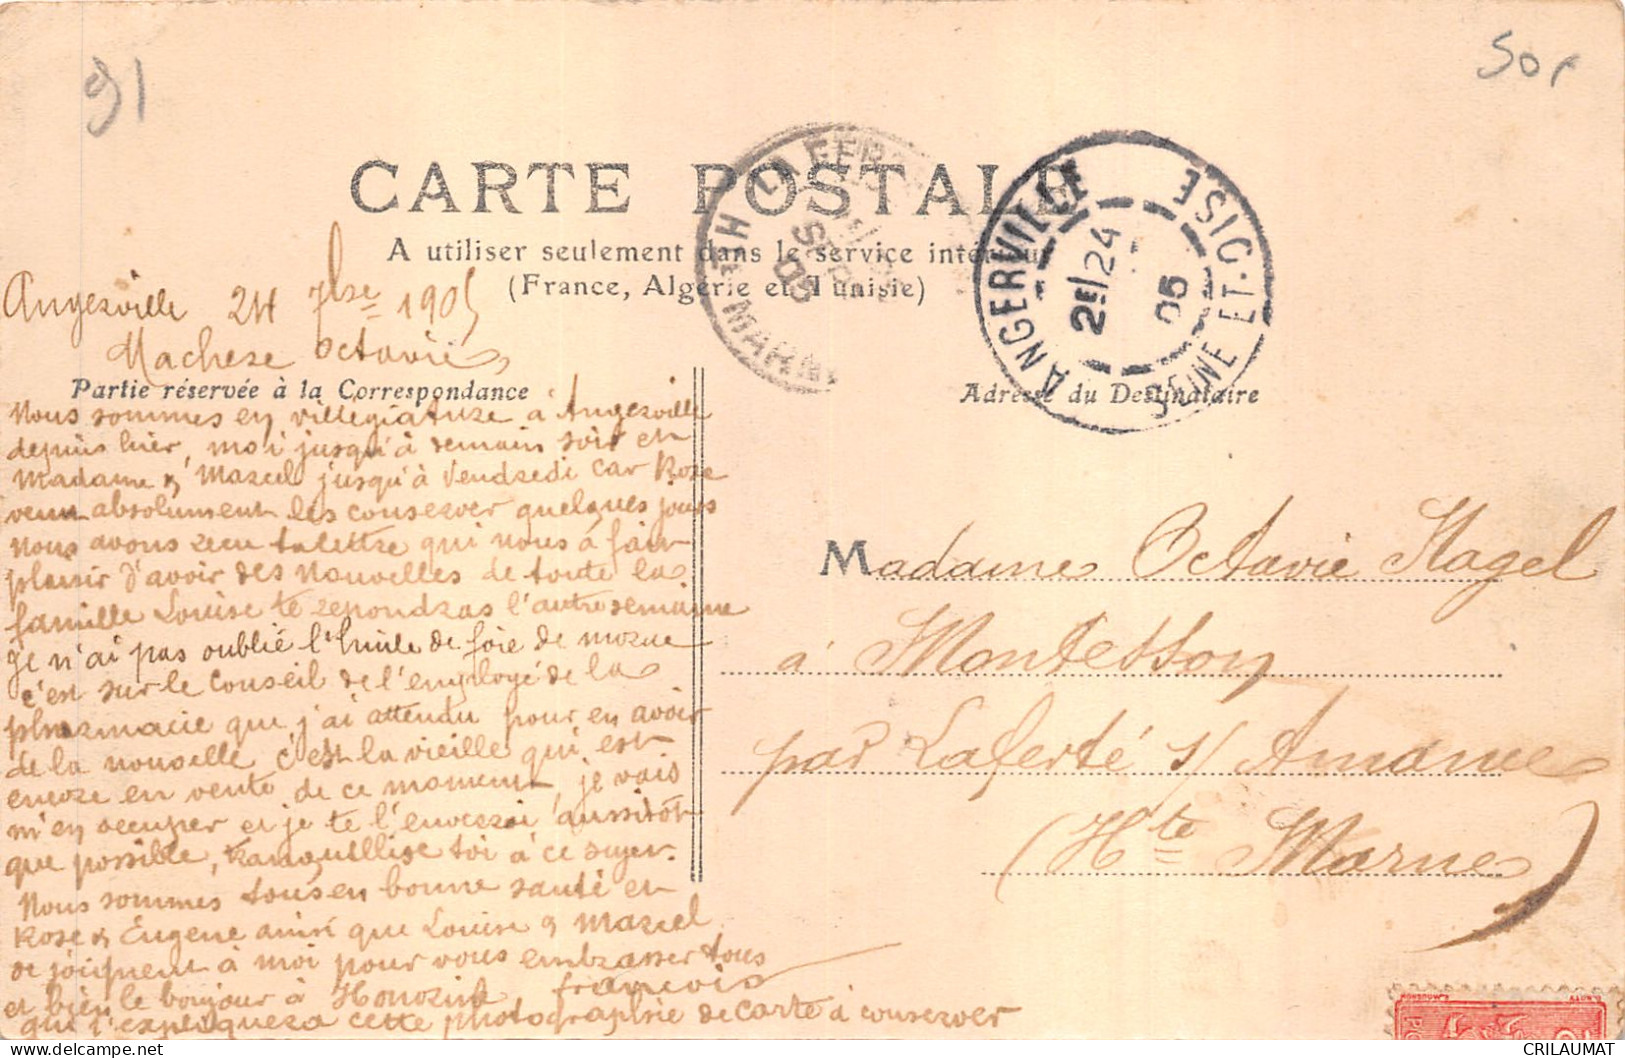 91
50f
CARTE POSTALE
A utiliser seulement dans le service intérieur
(France, Algérie et Tunisie)
LA FERTÉ
SEPT
05
HTE MARNE
ANGERVILLE
SEINE-ET-OISE
2E/24
05
Angerville 24 7bre 1905
Ma chere Octavie,
Partie réservée à la Correspondance
Adresse du Destinataire
Nous sommes en villegiature à Angerville
depuis hier, moi jusqu'à demain soir et
Madame & Marcel jusqu'à Vendredi car Rose
veut absolument les conserver quelques jours
Nous avons recu ta lettre qui nous a fait
plaisir d'avoir des nouvelles de toute la
famille Louise te repondras l'autre semaine
Je n'ai pas oublié l'huile de foie de morue
c'est sur le conseil de l'employé de la
pharmacie que j'ai attendu pour en avoir
de la nouvelle c'est la vieille qui est
encore en vente de ce moment, je vais
m'en occuper et je te l'enverrai aussitôt
que possible, tranquillise toi à ce sujet.
Nous sommes tous en bonne santé et
Rose & Eugene ainsi que Louise & Marcel
se joignent à moi pour vous embrasser tous
et bien le bonjour à
francois
qui t'expliquera cette photographie de carte à conserver
Madame Octavie Nagel
à Montesson
par Laferté s/ Amance
(Hte Marne)
CRILAUMAT
Delcampe.net